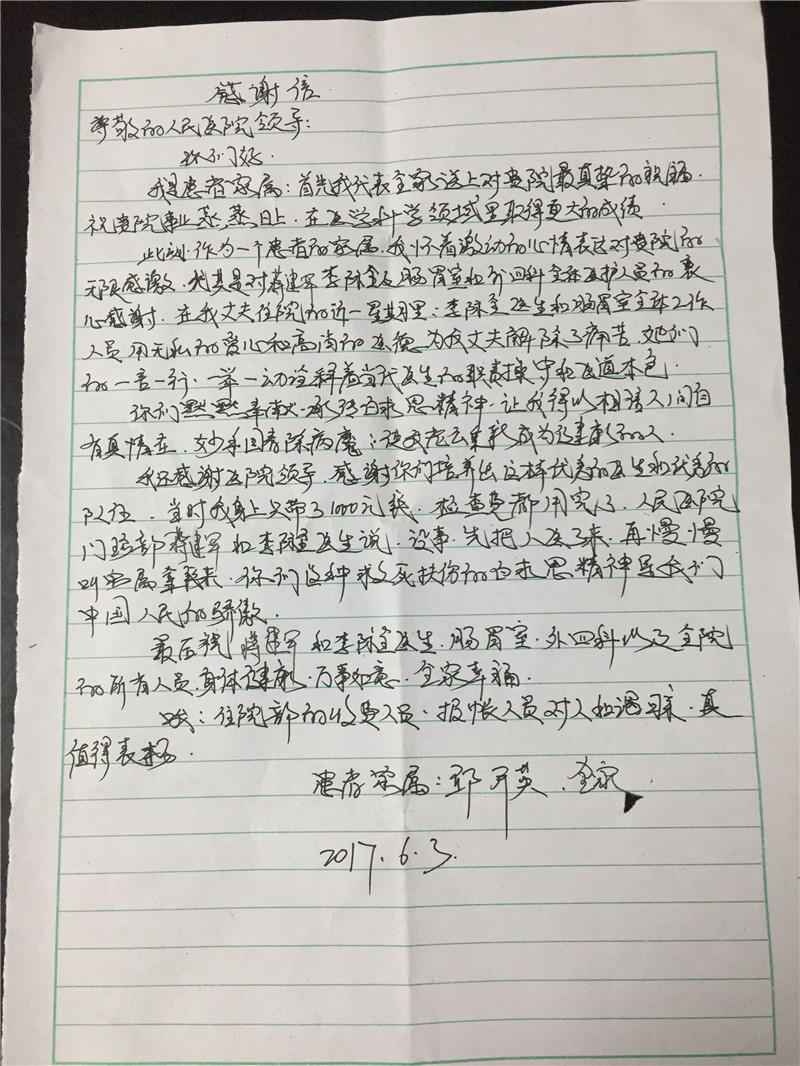 感谢信
尊敬的人民医院领导:
你们好.
我是患者家属:首先我代表全家送上对贵院最真挚的祝福.
祝贵院事业蒸蒸日上.在医学科学领域里取得更大的成绩
此刻作为一个患者的家属.我怀着激动的心情表达对贵院的
无限感激.尤其是对蒋建军李际全及肠胃室和外四科全体医护人员的衷
心感谢.在我丈夫住院的近一星期里:李际全医生和肠胃室全体工作
人员用无私的爱心和高尚的医德为我丈夫解除了痛苦.她们
的一言一行.一举一动诠释着当代医生的职责操守和医道本色.
你们默默奉献.承传白求恩精神.让我得以相请人间自
有真情在.妙手回春除病魔;
我还感谢医院领导.感谢你们培养出这样优秀的医生和优秀的
队伍.当时我身上只带了1000元钱.检查费都用完了.人民医院
门珍部蒋建军和李际全医生说.没事.先把人医了来.再慢慢
叫家属拿钱来.你们这种救死扶伤的白求恩精神是我们
中国人民的骄傲.
最后祝蒋建军和李际全医生.肠胃室.外四科以及全院
的所有人员.身体健康.万事如意.全家幸福.
哦:住院部的收费人员.报帐人员对人和谒可亲.真
值得表扬.
患者家属:邱开英.全家
2017.6.3.